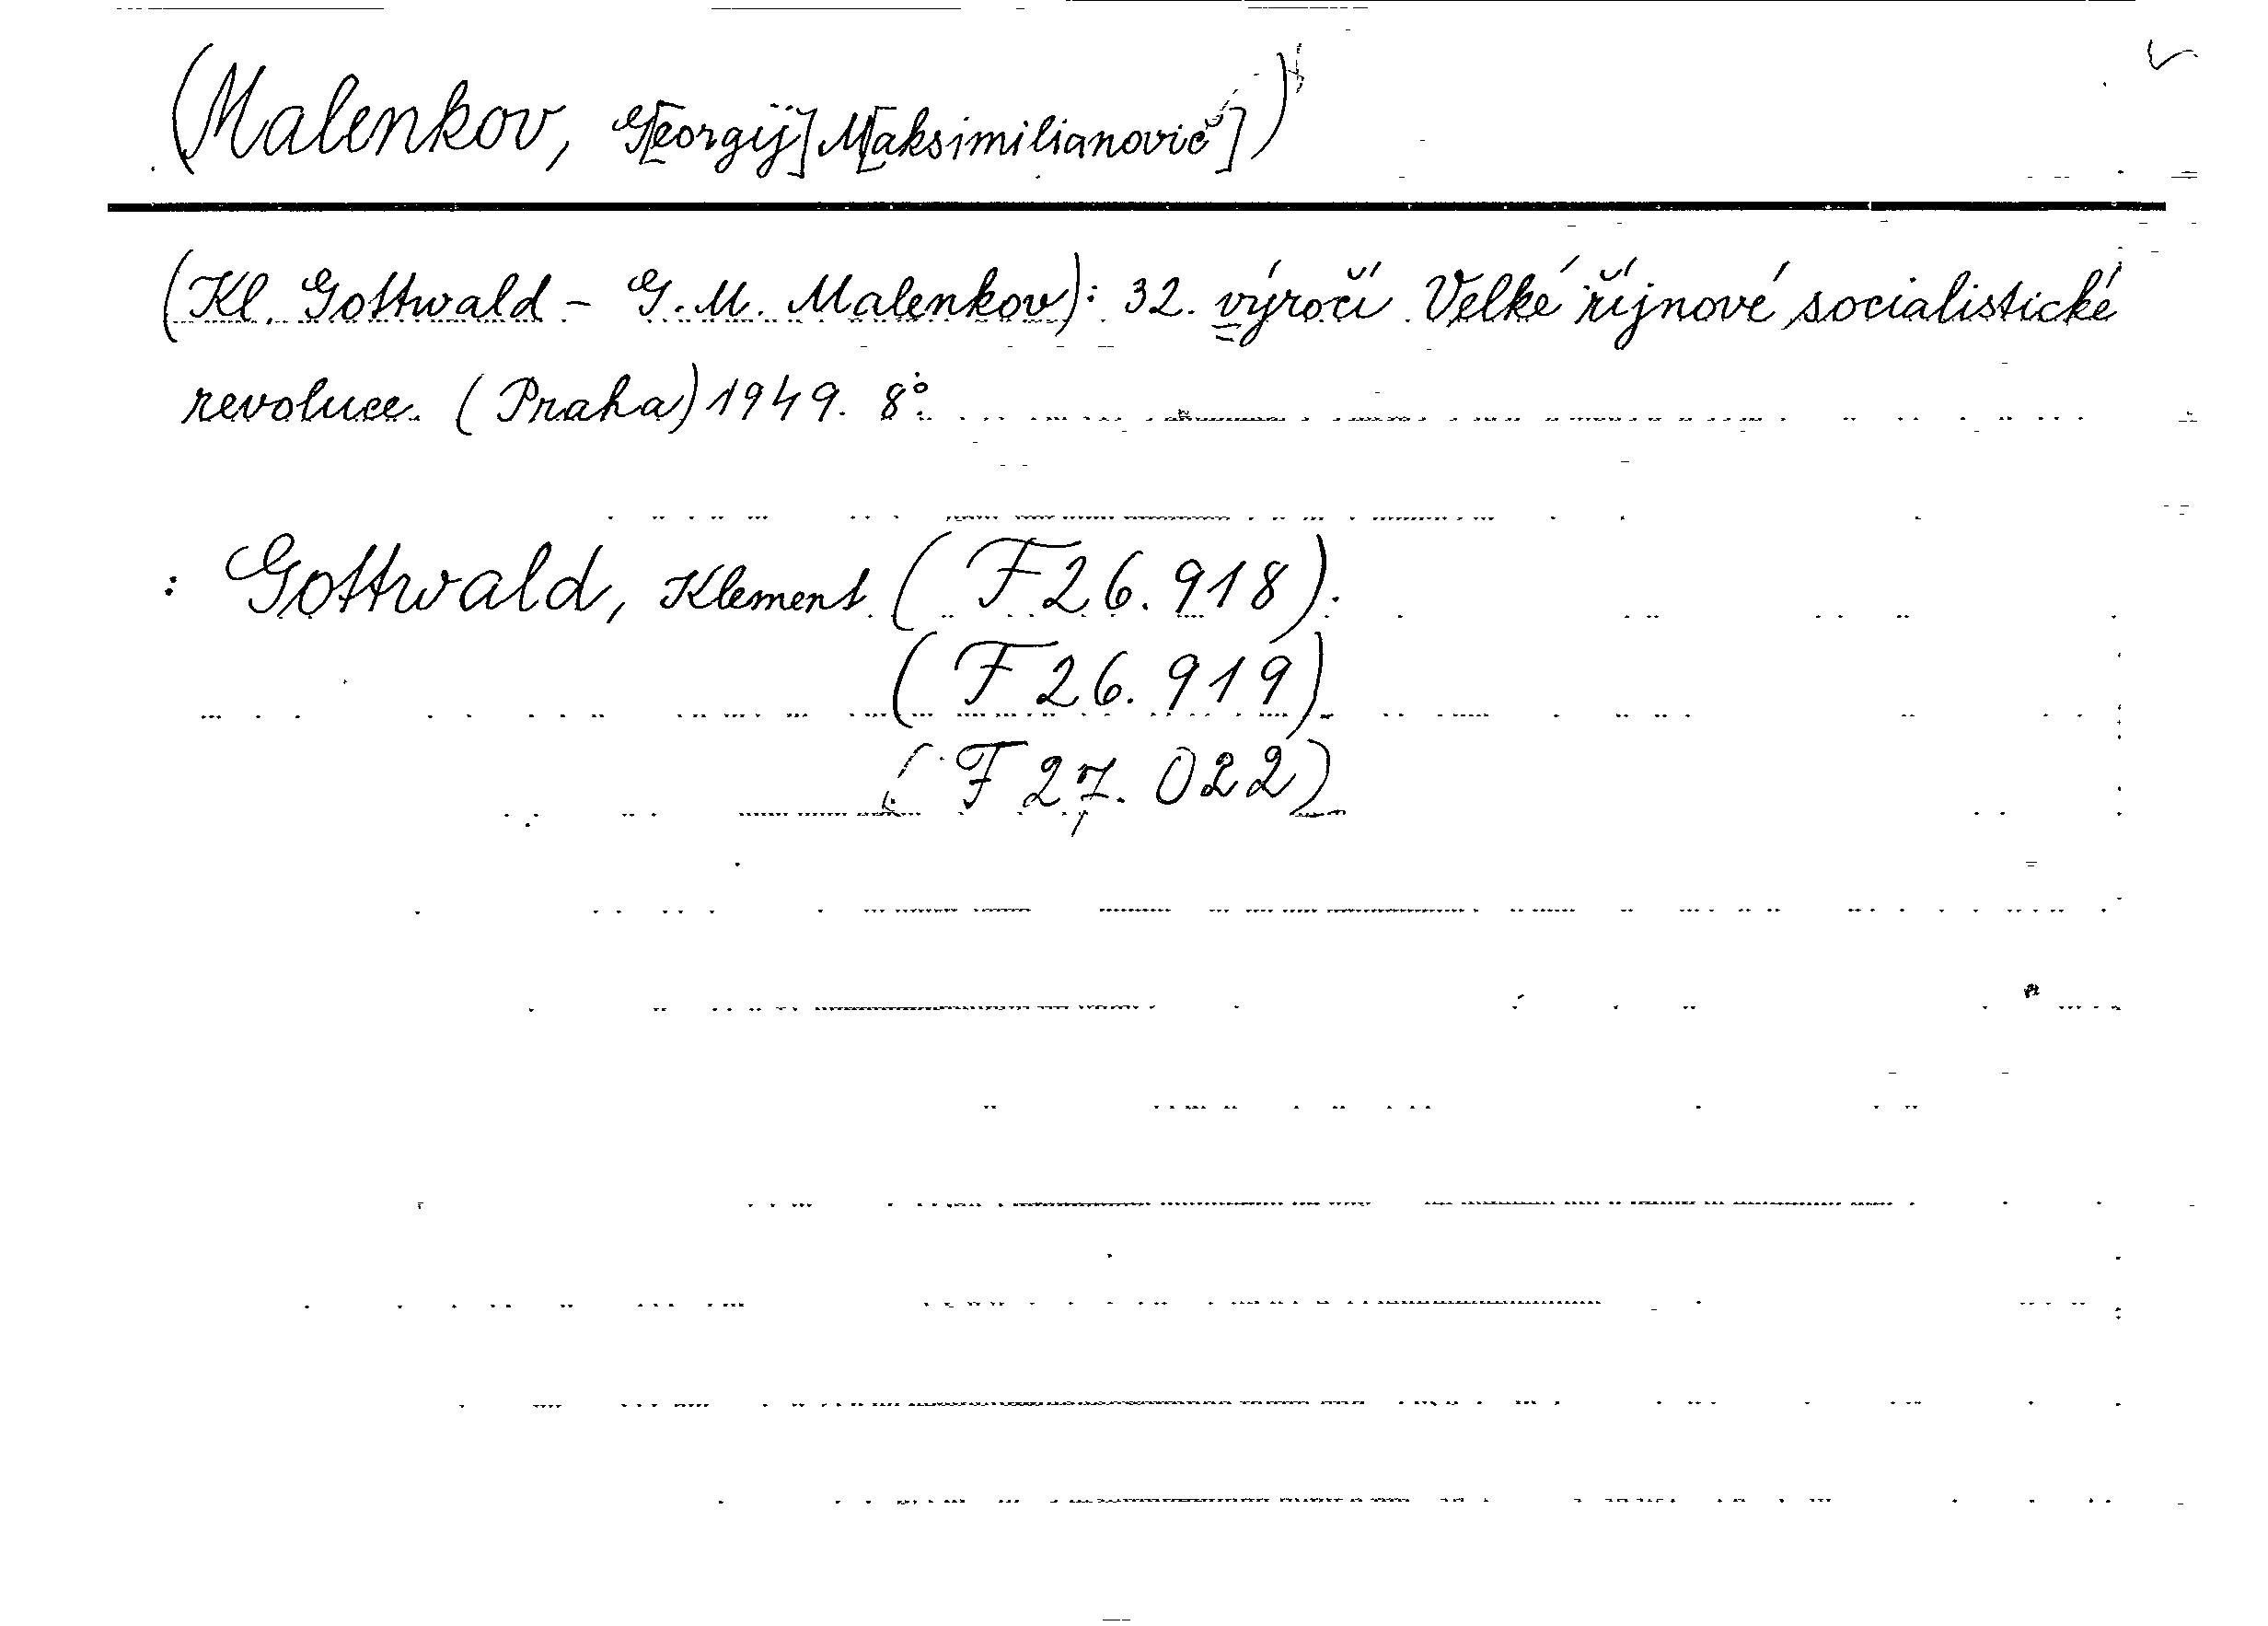 (Malenkov, G[eorgij] M[aksimilianovič])
(Kl. Gottwald - G. M. Malenkov): 32. výročí Velké říjnové socialistické
revoluce. (Praha) 1949. 8°.
: Gottwald, Klement (F 26.918).
(F 26.919)
(F 27.022)